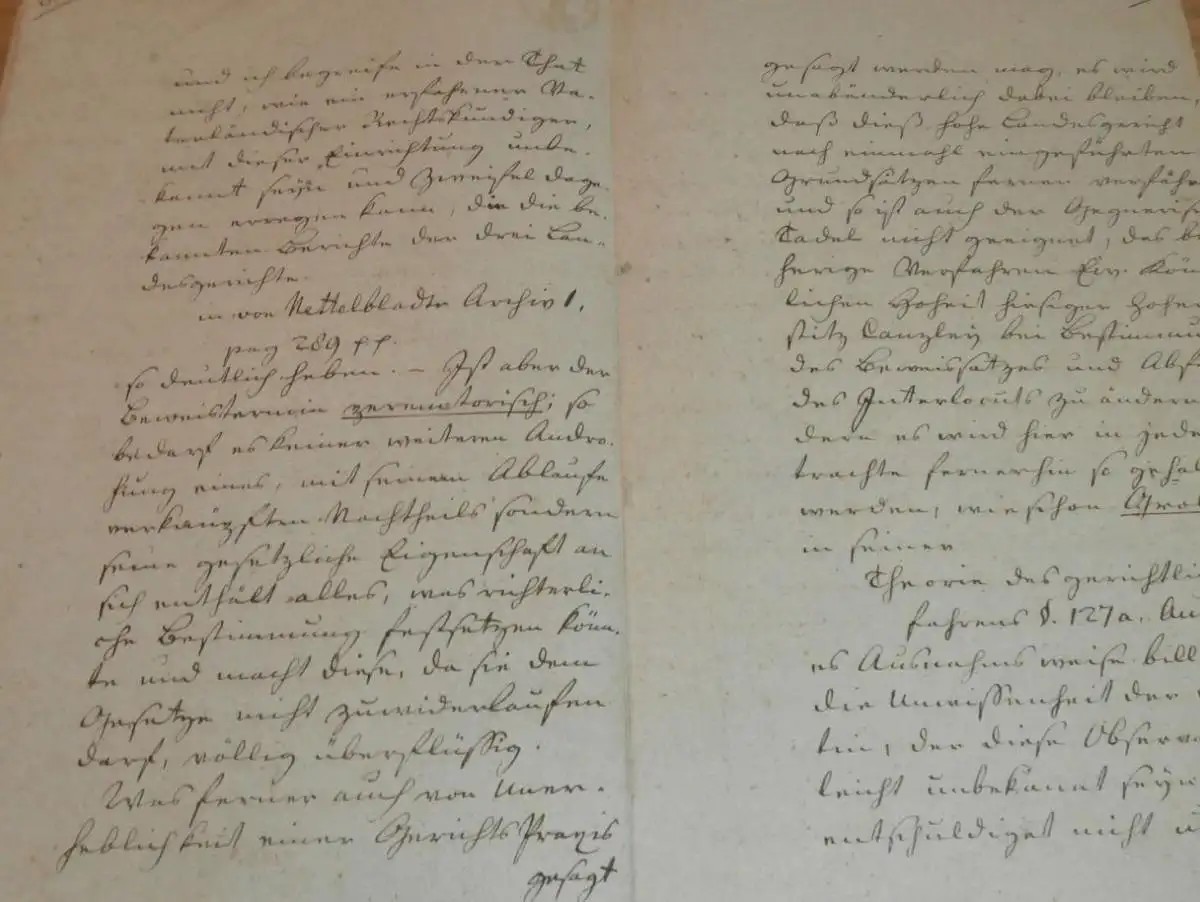 und ich begreife in der That
nicht, wie ein erfahrener Va-
terländischer Rechtskundiger,
mit dieser Einrichtung unbe-
kannt seyn und Zweifel dage-
gen erregen kann, die die be-
kannten Berichte der drei Lan-
desgerichte.
in von Nettelbladts Archiv 1.
pag 289 pp.
so deutlich heben. - Ist aber der
Beweistermin peremtorisch; so
bedarf es keiner weiteren Andro-
hung eines, mit seinem Ablaufe
verknüpften Nachtheils sondern
seine gesetzliche Eigenschaft an
sich enthält alles, was richterli-
che Bestimmung festsetzen könn-
te und macht diese, da sie dem
Gesetze nicht zuwiderlaufen
darf, völlig überflüssig.
Was ferner auch von Uner-
heblichkeit einer GerichtsPraxis
gesagt
gesagt werden mag, es wird
unabänderlich dabei bleiben,
daß dieß hohe Landesgericht
nach einmahl eingeführten
Grundsätzen ferner verfähr
und so ist auch der Gegneris
Tadel nicht geeignet, das bis
herige Verfahren Ew. Kön
lichen Hoheit hiesiger Hoher
stitz Canzley bei Bestimmu
des Beweissatzes und Abf
des Interlocuts zu ändern
dern es wird hier in jede
trachte fernerhin so geha
werden, wie schon
in seiner
Theorie des gerichtli
fahrens §. 127a. An
es Ausnahmsweise bill
die Unwissenheit der
tin, der diese Observa
leicht unbekannt seyn
entschuldiget nicht